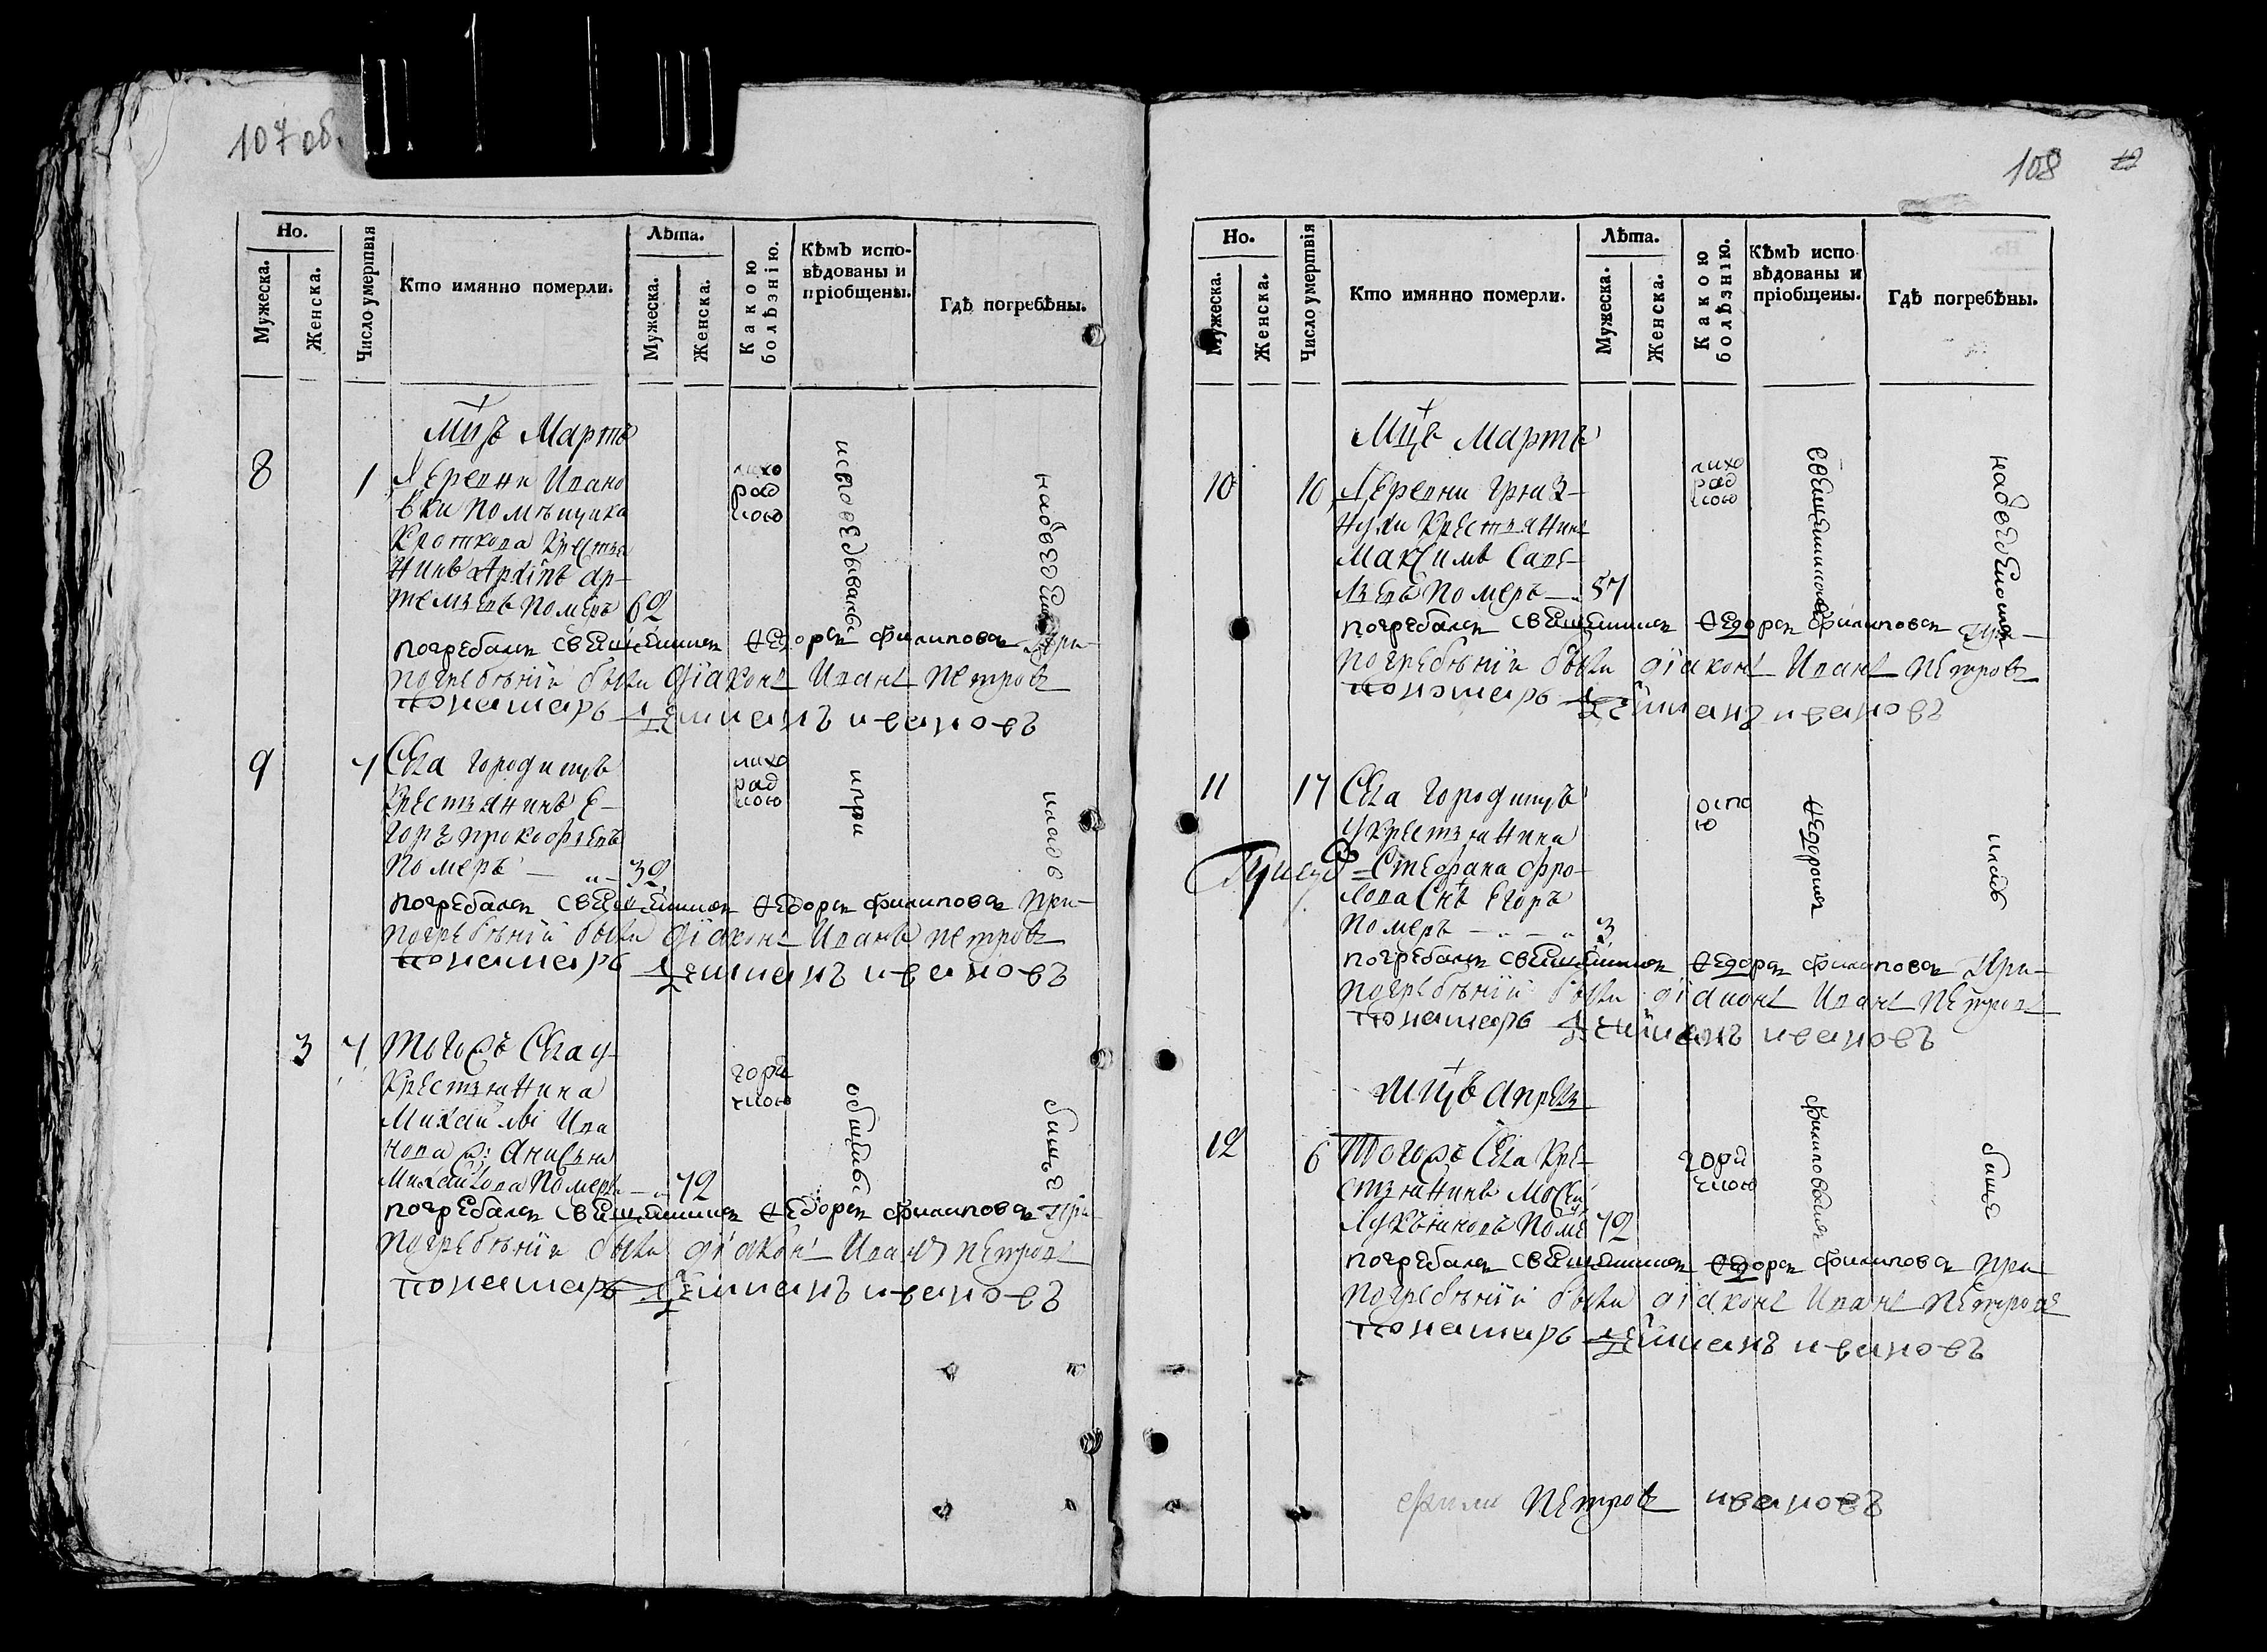 107 об.
Но.
Мужеска.
Женска.
Число умертвія
Кто имянно померли.
Лѣта.
Мужеска.
Женска.
Какою болѣзнію.
Кѣмъ испо-
вѣдованы и
пріобщены.
Гдѣ погребѣны.
Мцъ Мартъ
8 1 Деревни Ивано
вки помѣщика
Кроткова кресття
нинъ Архипъ Ар-
темьевъ померъ 62
лихо
рад
кою
погребалъ священникъ Ѳедоръ Филиповъ при
погребѣніи были діаконъ Иванъ Петровъ
пономарь Демианъ ивановъ
9 7 Села Городищъ
крестьянинъ Е-
горъ Прокофьевъ
померъ — „ — 32
лихо
рад
кою
погребалъ священникъ Ѳедоръ Филиповъ при-
погребѣніи были діаконъ Иванъ Петровъ
пономарь Демианъ ивановъ
3 7 Тогожъ Села у
крестьянина
Михаилы Ива
нова ж: Анисья
Михайлова померла — „ 72
горя
чкою
погребалъ священникъ Ѳедоръ Филиповъ при
погребѣніи были діаконъ Иванъ Петровъ
пономарь Демианъ ивановъ
исповедываны
и при
общены
на отведенномъ
кладб
бищѣ
108
Но.
Мужеска.
Женска.
Число умертвія
Кто имянно померли.
Лѣта.
Мужеска.
Женска.
Какою болѣзнію.
Кѣмъ испо
вѣдованы и
пріобщены.
Гдѣ погребѣны.
Мцъ Мартъ
10 10 Деревни Гряз-
нухи крестьянинъ
Максимъ Саве-
льевъ померъ — 57
лихо
рад
кою
погребалъ священникъ Ѳедоръ Филиповъ при-
погребѣніи были діаконъ Иванъ Петровъ
пономарь Демианъ ивановъ
11 17 Села Городищъ
у крестьянина
Стефана Фро-
лова Снъ Егоръ
померъ — „ — „ 3
оспо
ю
погребалъ священникъ Ѳедоръ Филиповъ при-
погребѣніи были діаконъ Иванъ Петровъ
пономарь Демианъ ивановъ
Мцъ Апрель
12 6 Тогожъ Села кре-
стьянинъ Мосей
Лукьяновъ поме 72
горя
чкою
погребалъ священникъ Ѳедоръ Филиповъ при
погребѣніи были діаконъ Иванъ Петровъ
пономарь Демианъ ивановъ
священникомъ
Ѳедоромъ
Филиповымъ
на отведенномъ
кладб
бище
Петровъ ивановъ